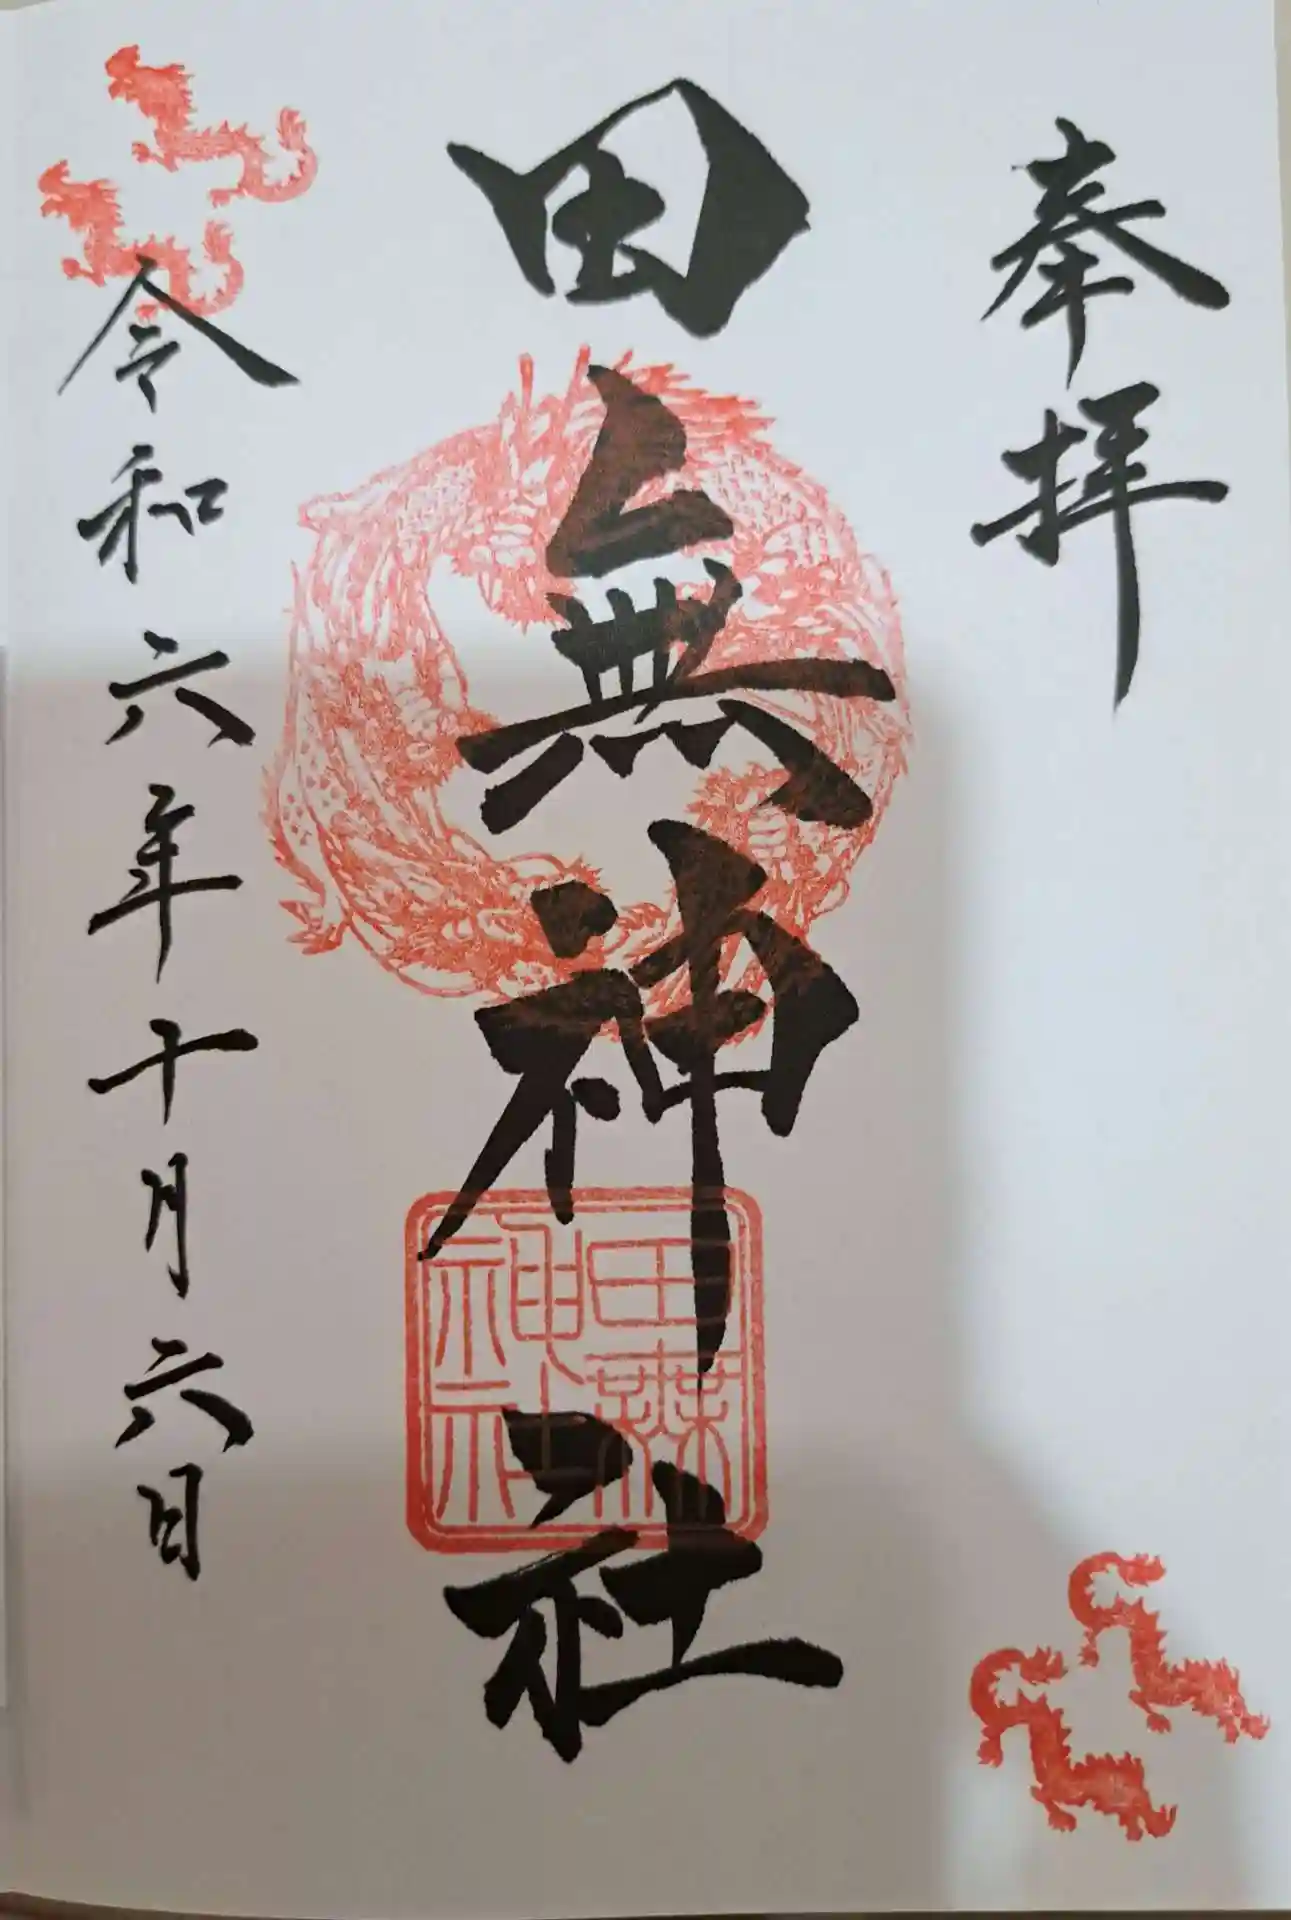 奉拝
田無神社
田無
神社
令和六年十月六日